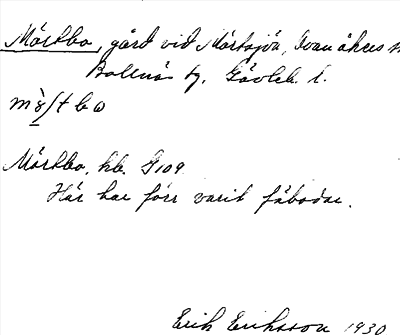 Mårtbo, gård vid Mårtsjön, Svanåkers
Bollnäs sn, Gävleb. l.
Mårtbo, hb. G 109
Här har förr varit fäbodar.
Erik Eriksson 1930